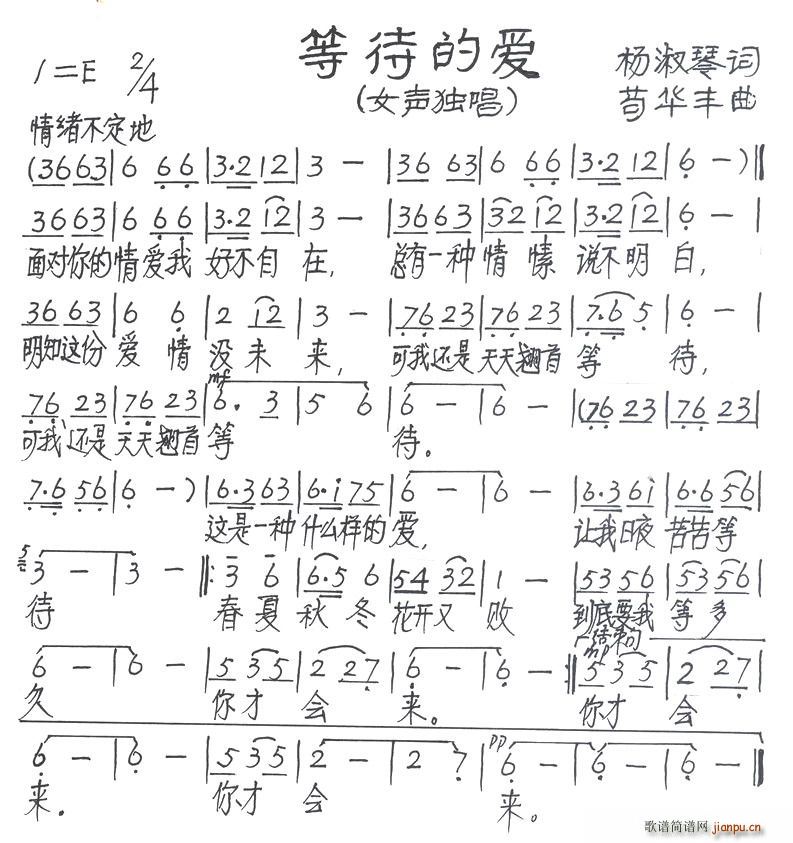 等待的爱
(女声独唱)
1=E 2/4
杨淑琴词
苟华丰曲
情绪不定地
(36 63 | 6 66 | 3·2 12 | 3 — | 36 63 | 6 66 | 3·2 12 | 6 — )‖
36 63 | 6 66 | 3·2 12 | 3 — | 36 63 | 32 12 | 3·2 12 | 6 — |
面对你的情爱我 好不自在, 总有一种情愫 说不明白,
36 63 | 6 6 | 2 12 | 3 — | 76 23 | 76 23 | 7·6 5 | 6 — |
明知这份 爱情 没未来, 可我还是天天翘首 等待,
mf
76 23 | 76 23 | 6· 3 | 5 6 | 6 — | 6 — | (76 23 | 76 23 |
可我还是天天翘首 等 待。
7·6 56 | 6 — ) | 6·3 63 | 6·i 75 | 6 — | 6 — | 6·3 6i | 6·6 56 |
这是一种 什么样的 爱, 让我日夜 苦苦等
3 — | 3 — |: 3 6 | 6·5 6 | 54 32 | 1 — | 53 56 | 53 56 |
待 春夏 秋冬 花开又败 到底要我 等多
结束句
mp
6 — | 6 — | 5 35 | 2 27 | 6 — | 6 — :‖ 5 35 | 2 27 |
久 你才 会 来。 你才 会
pp
6 — | 6 — | 5 35 | 2 — | 2 7 | 6 — | 6 — | 6 — ‖
来。 你才 会 来。
歌谱简谱网
jianpu.cn